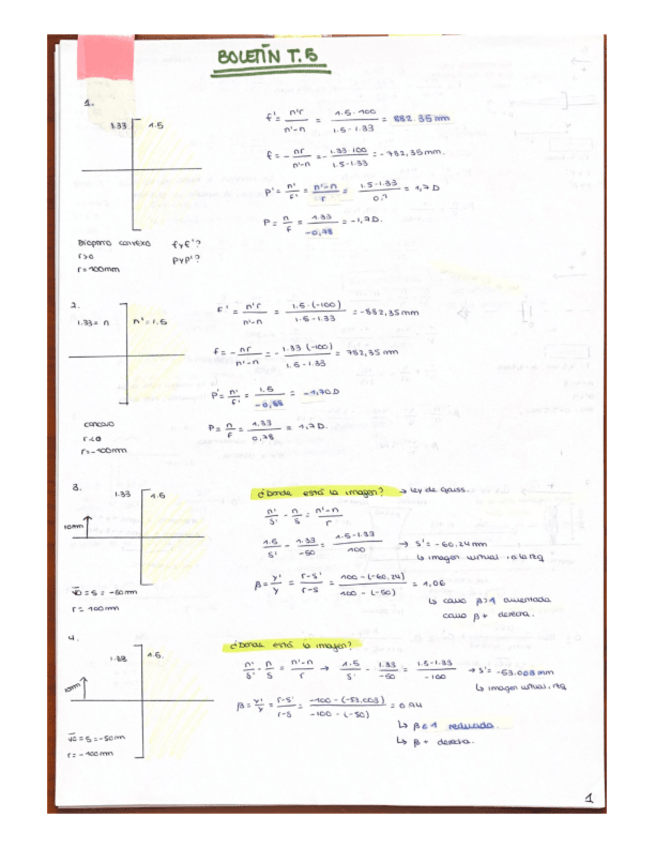 BOLETÍN T.5
1.
1.33 1.5
f' = n'r / n'-n = 1.5·100 / 1.5-1.33 = 882.35 mm
f = - nr / n'-n = - 1.33·100 / 1.5-1.33 = -782,35 mm.
P' = n' / f' = n'-n / r = 1.5-1.33 / 0.1 = 1,7 D
P = n / f = 1.33 / -0,78 = -1,7D.
Dioptrio convexo f y f'?
r>0 P y P'?
r = 100mm
2.
1.33 = n n' = 1.5
f' = n'r / n'-n = 1.5·(-100) / 1.5-1.33 = -882,35mm
f = - nr / n'-n = - 1.33 (-100) / 1.5-1.33 = 782,35 mm
P' = n' / f' = 1.5 / -0,88 = -1,70D
P = n / f = 1.33 / 0,78 = 1,7D.
concavo
r<0
r = -100mm
3.
1.33 1.5
10mm
¿Donde está la imagen? → Ley de Gauss.
n' / s' - n / s = n'-n / r
1.5 / s' - 1.33 / -50 = 1.5-1.33 / 100 → s' = -60,24mm
↳ imagen virtual, a la izq
β = y' / y = r-s' / r-s = 100-(-60,24) / 100-(-50) = 1,06
↳ como β>1 aumentada
como β+ derecha.
VO = s = -50mm
r = 100mm
4.
1.33 1.5.
10mm
¿Donde está la imagen?
n' / s' - n / s = n'-n / r → 1.5 / s' - 1.33 / -50 = 1.5-1.33 / -100 → s' = -53.003 mm
↳ imagen virtual, izq
β = y' / y = r-s' / r-s = -100-(-53,003) / -100-(-50) = 0.94
↳ β<1 reducida.
↳ β+ derecha.
VO = s = -50mm
r = -100mm
1